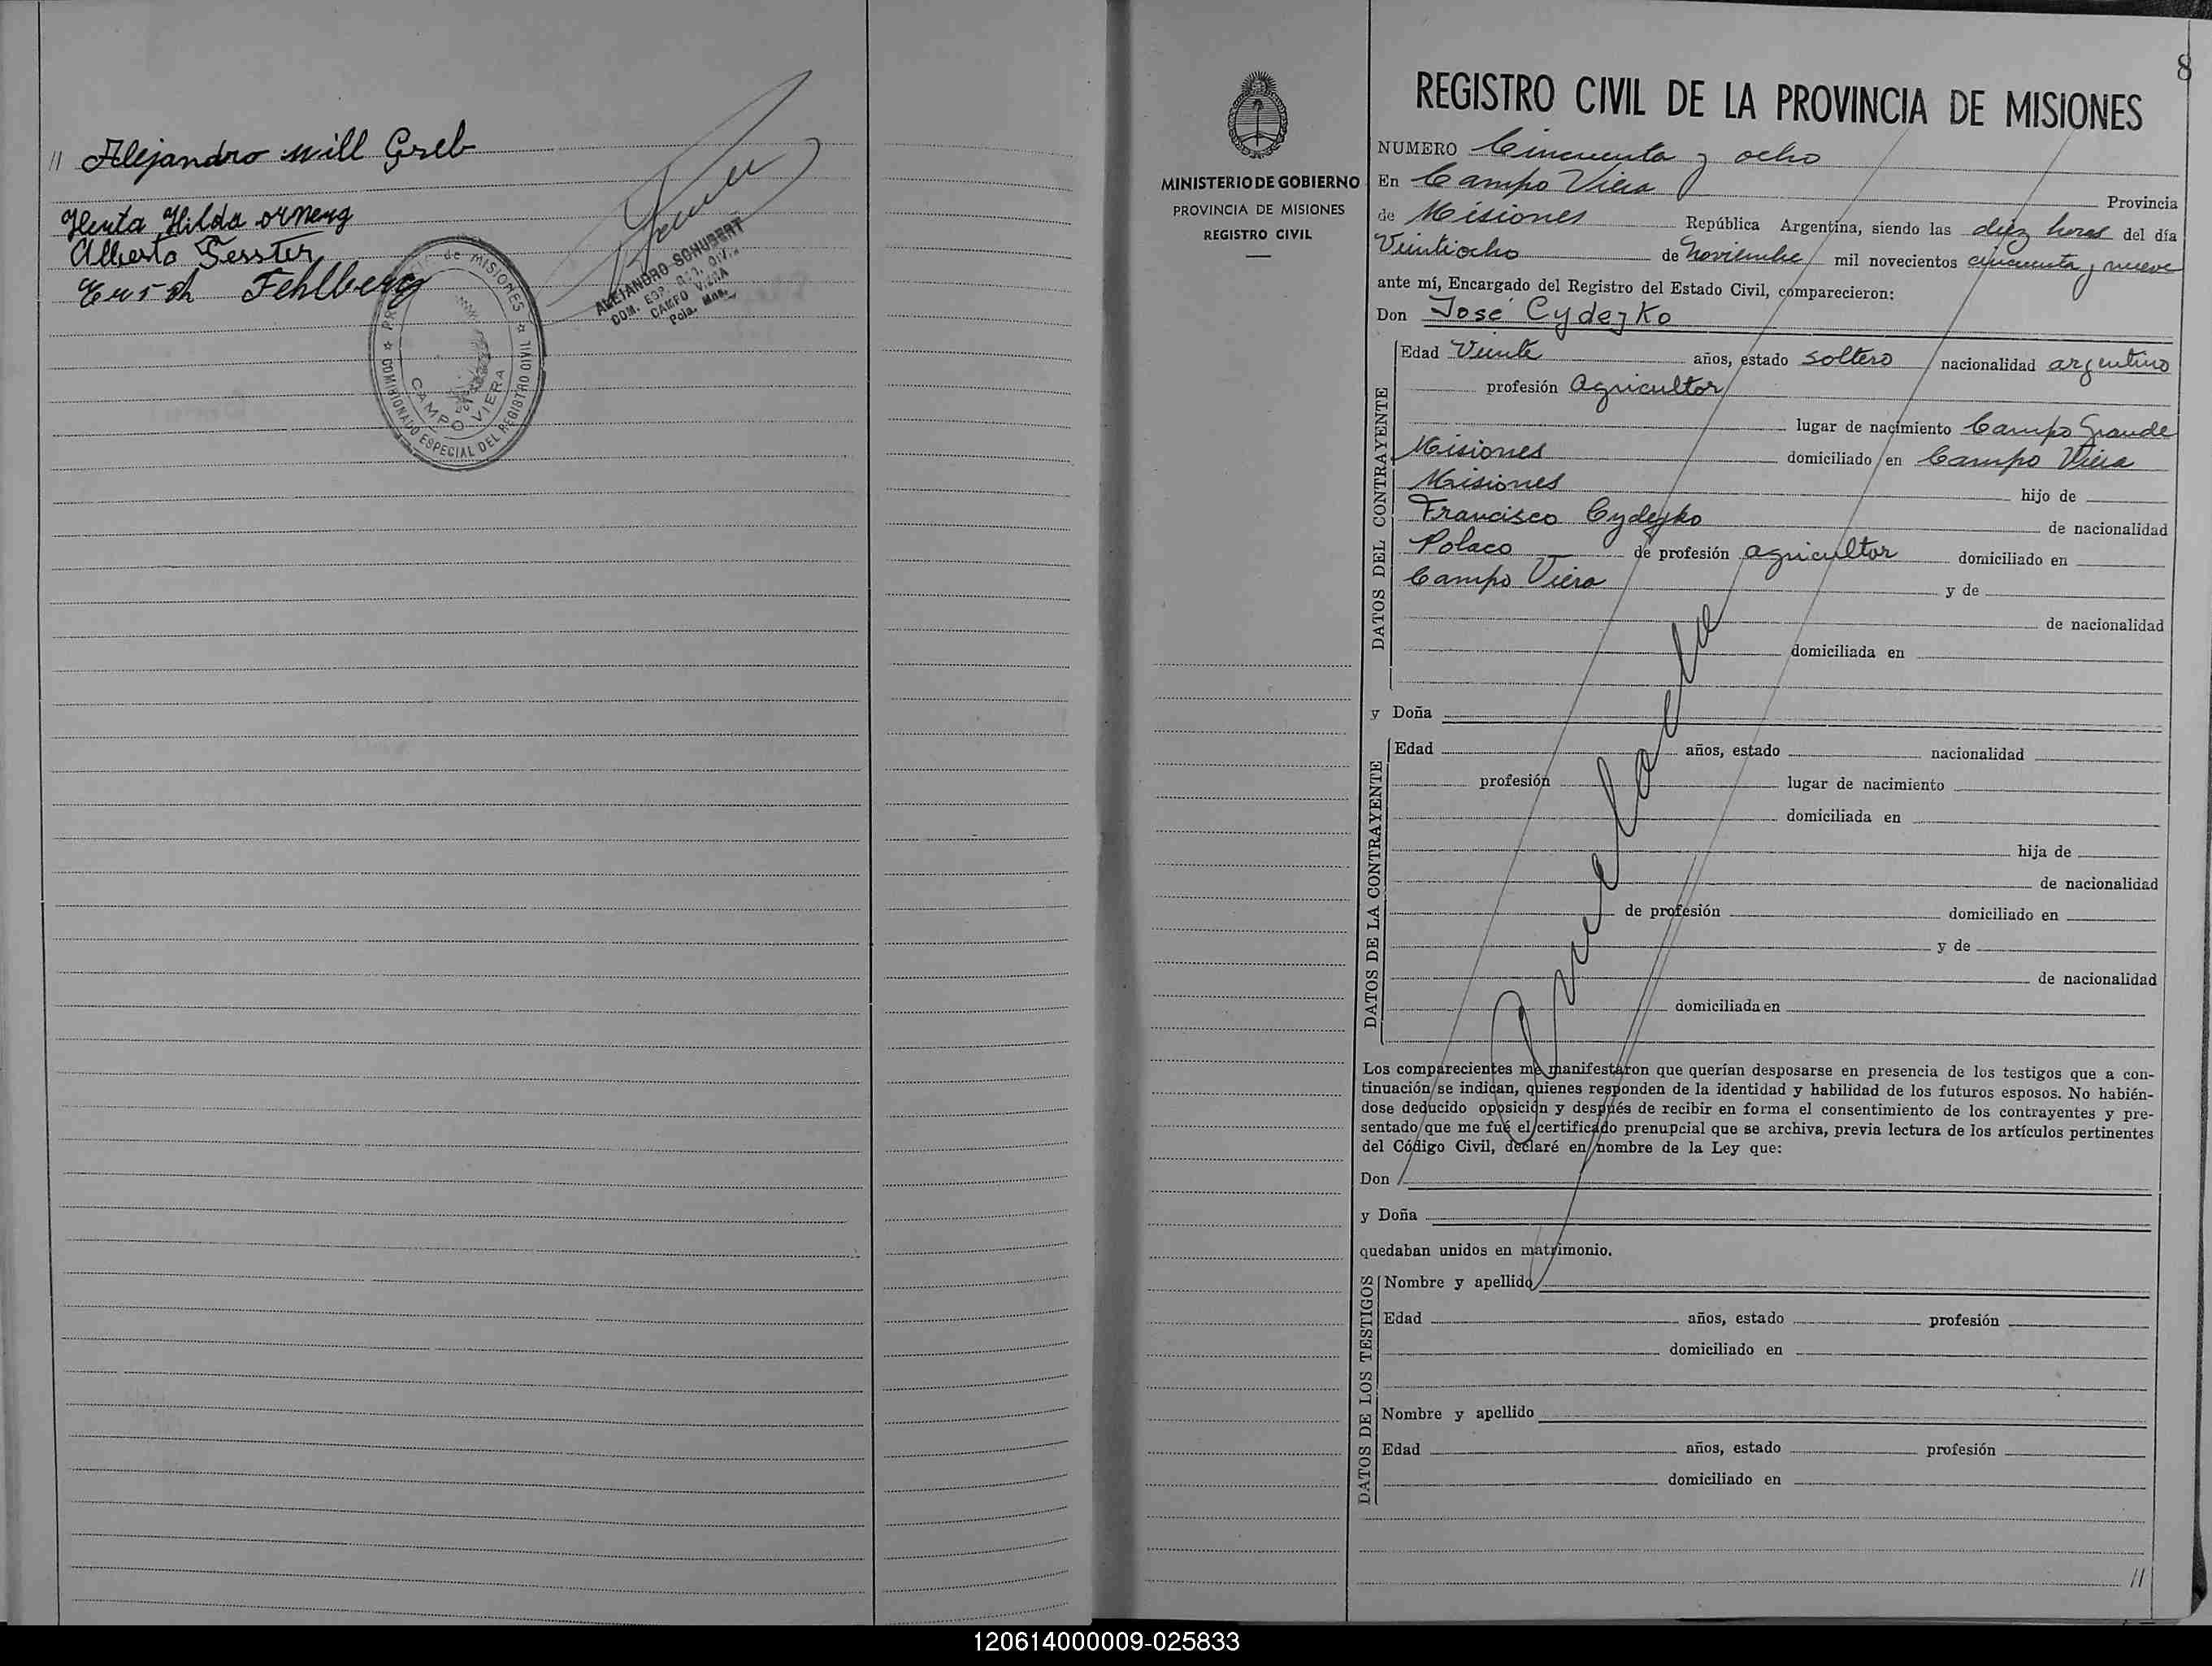 // Alejandro will Greb
Herta Hilda
Alberto
Fehlberg
de MISIONES
COMISIONADO ESPECIAL DEL REGISTRO CIVIL
CAMPO VIERA
ALEJANDRO SCHUBERT
COM. ESP. REG. CIV.
CAMPO VIERA
Pcia. Mnes.
MINISTERIO DE GOBIERNO
PROVINCIA DE MISIONES
REGISTRO CIVIL
8
REGISTRO CIVIL DE LA PROVINCIA DE MISIONES
NUMERO Cincuenta y ocho
En Campo Viera Provincia
de Misiones República Argentina, siendo las diez horas del día
Veintiocho de Noviembre mil novecientos cincuenta y nueve
ante mí, Encargado del Registro del Estado Civil, comparecieron:
Don José Cydejko
DATOS DEL CONTRAYENTE
Edad Veinte años, estado soltero nacionalidad argentino
profesión Agricultor
lugar de nacimiento Campo Grande
Misiones domiciliado en Campo Viera
Misiones hijo de
Francisco Cydejko de nacionalidad
Polaco de profesión agricultor domiciliado en
Campo Viera y de
de nacionalidad
domiciliada en
y Doña
DATOS DE LA CONTRAYENTE
Edad años, estado nacionalidad
profesión lugar de nacimiento
domiciliada en
hija de
de nacionalidad
de profesión domiciliado en
y de
de nacionalidad
domiciliada en
Los comparecientes me manifestaron que querían desposarse en presencia de los testigos que a con-
tinuación se indican, quienes responden de la identidad y habilidad de los futuros esposos. No habién-
dose deducido oposición y después de recibir en forma el consentimiento de los contrayentes y pre-
sentado que me fué el certificado prenupcial que se archiva, previa lectura de los artículos pertinentes
del Código Civil, declaré en nombre de la Ley que:
Don
y Doña
quedaban unidos en matrimonio.
DATOS DE LOS TESTIGOS
Nombre y apellido
Edad años, estado profesión
domiciliado en
Nombre y apellido
Edad años, estado profesión
domiciliado en
//
120614000009-025833